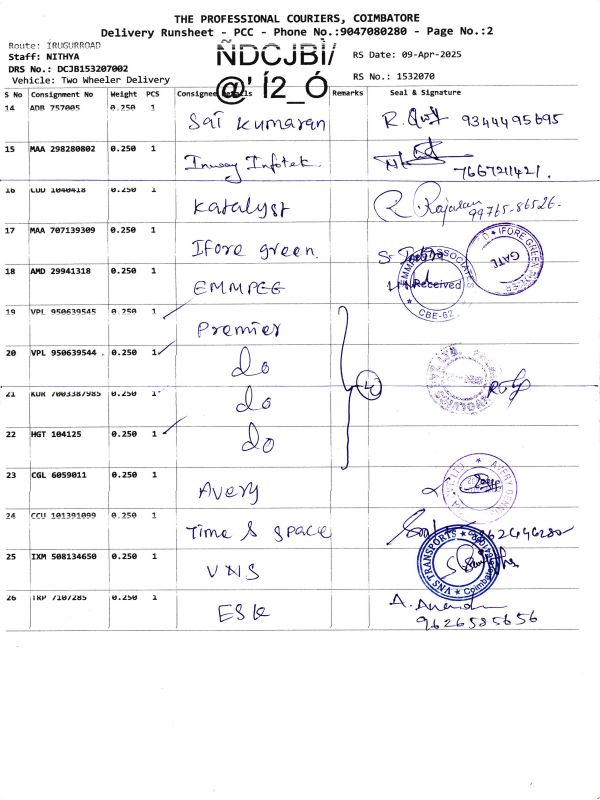 THE PROFESSIONAL COURIERS, COIMBATORE
Delivery Runsheet - PCC - Phone No.:9047080280 - Page No.:2
Route: IRUGURROAD
Staff: NITHYA
DRS No.: DCJB153207002
Vehicle: Two Wheeler Delivery
ÑDCJBÌ/
@' Í2_Ó
RS Date: 09-Apr-2025
RS No.: 1532070
S No Consignment No Weight PCS Consignee Details Remarks Seal & Signature
14 ADB 757005 0.250 1 Sai Kumaran R. 9344495695
15 MAA 298280802 0.250 1 Inway Infotek. 7667211421.
16 COD 1040418 0.250 1 Katalyst R Rajalan 99765-86526-
17 MAA 707139309 0.250 1 Ifore green. IFORE GREEN POWER GATE
18 AMD 29941318 0.250 1 EMMPEE EMMPEE ASSOCIATES Received CBE-62
19 VPL 950639545 0.250 1 Premier
20 VPL 950639544 0.250 1 do
21 KUR 7003387985 0.250 1 do
22 HGT 104125 0.250 1 do
23 CGL 6059011 0.250 1 Avery
24 CCU 101391099 0.250 1 Time & space
25 IXM 508134650 0.250 1 VNS VNS TRANSPORTS Coimbatore
26 TRP 7107285 0.250 1 ESK A. Anand
9626585656